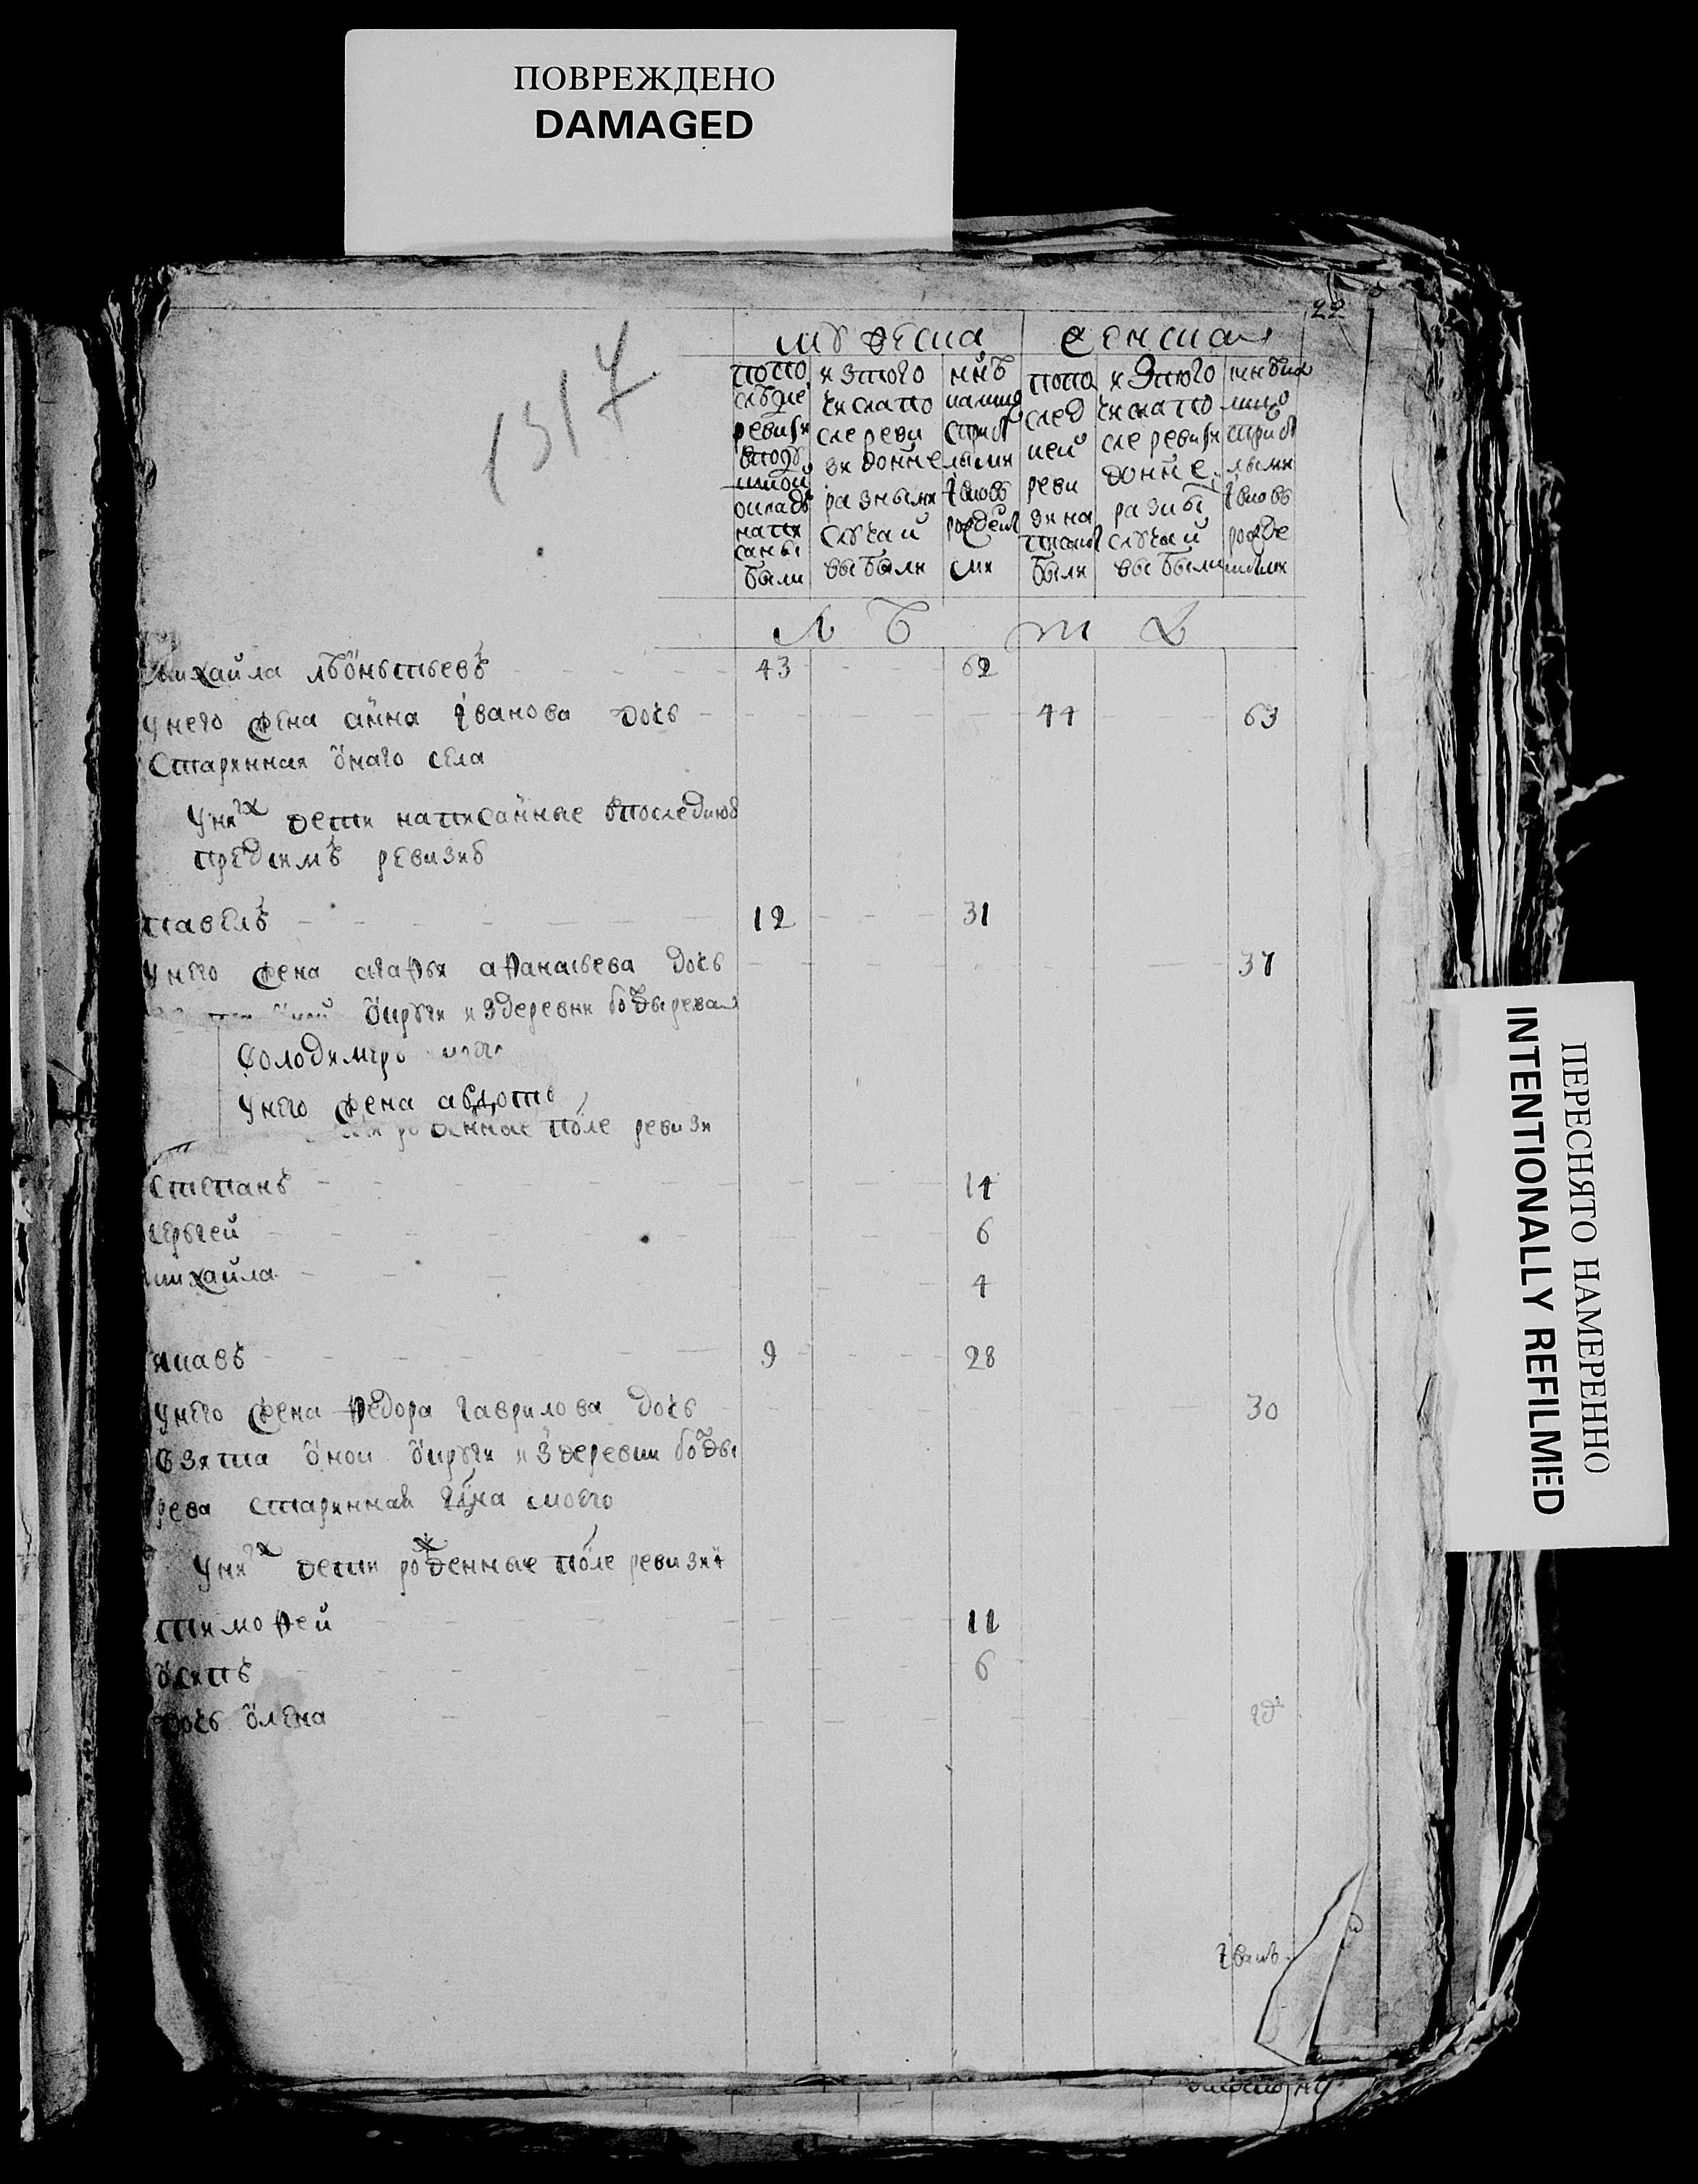 ПОВРЕЖДЕНО
DAMAGED
22
1317
мужеска женска
попо следне ревизи вподу шной окладъ напи саны были
изтого числа по сле реви зи доннe разными случаи выбыли
ннѣ налицо с прибылыми і вновь рожден ми
попо след ней реви зи на писаны были
изтого числа по сле ревизи доннe разны случаи выбыли
лицо с прибылыми і вновь рожде ными
лѣ та
михайла леонтьевъ 43 62
унего жена анна іванова дочь 44 63
Старинная онаго села
Уних дети написанные впоследню
пред симъ ревизию
павелъ 12 31
унего жена марфья афанасьева дочь 37
округи издеревни болдырева
володимир
унего жена авдотья
рожденные после ревизи
степанъ 14
сергей 6
михайла 4
яковъ 9 28
унего жена федора гаврилова дочь 30
взята оной округи издеревни болды
рева старинная гдна моего
Уних дети рожденные после ревизии
тимофей 11
осипъ 6
дочь олена
іванъ
ПЕРЕСНЯТО НАМЕРЕННО
INTENTIONALLY REFILMED